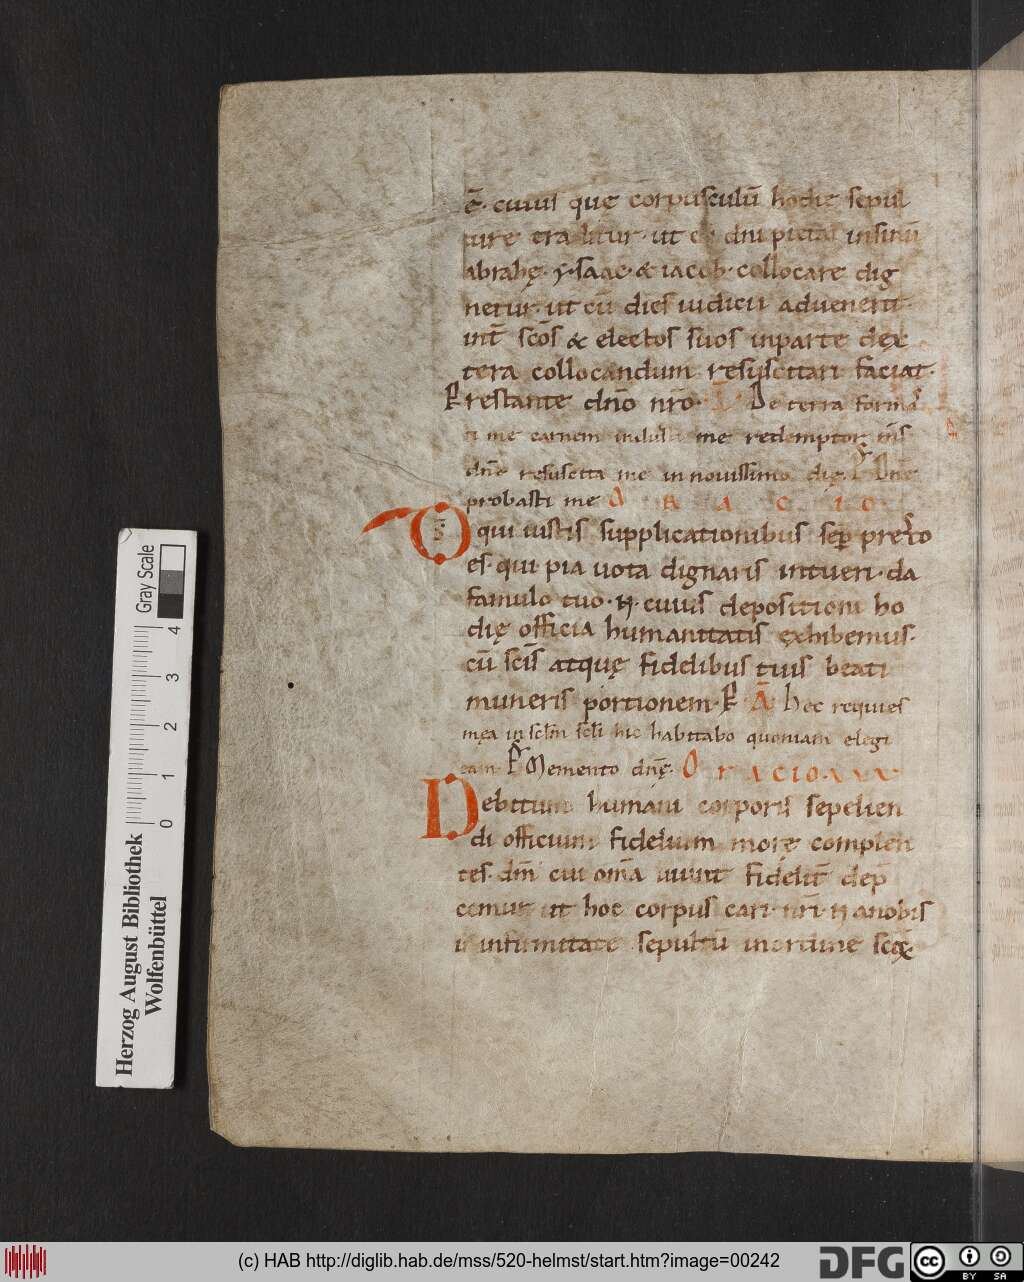 ē· cuius quę corpusculū hodie sepul
ture traditur· ut ei dn̄i pietas insinū
abrahę· ysaac· & iacob· collocare dig
netur· ut cū dies iudicii aduenerit
int̄ sc̄os & electos suos inparte dex
tera collocandum resuscitari faciat·
Prestante dn̄o nr̄o· De terra forma
ti me carnem me redemptor m̄s
dn̄e resuscita me innouissimo die. Ps Dn̄e
probasti me ORACIO
DS̄ qui iustis supplicationibus sep̄ presto
es· qui pia uota dignaris intueri· da
famulo tuo· N· cuius depositioni ho
dię officia humanitatis exhibemus·
cū sc̄is atquę fidelibus tuis beati
muneris portionem· P Ā Hec requies
mea in sc̄lm sc̄li hic habitabo quoniam elegi
eam Ps Memento dn̄ę. ORACIO
Debitum humani corporis sepelien
di officium fidelium more complen
tes· dm̄ cui om̄a uiuunt fidelit̄ dep̄
cemur ut hoc corpus cari nr̄i N anobis
ininfirmitate sepultū inordine sc̄oꝝ·
Herzog August Bibliothek
Wolfenbüttel
Gray Scale
0 1 2 3 4
(c) HAB http://diglib.hab.de/mss/520-helmst/start.htm?image=00242
DFG
cc BY SA